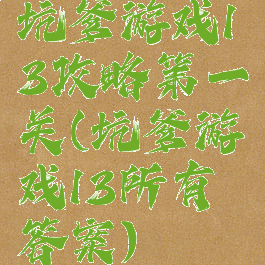 坑爹游戏1
3攻略第一
关(坑爹游
戏13所有
答案)